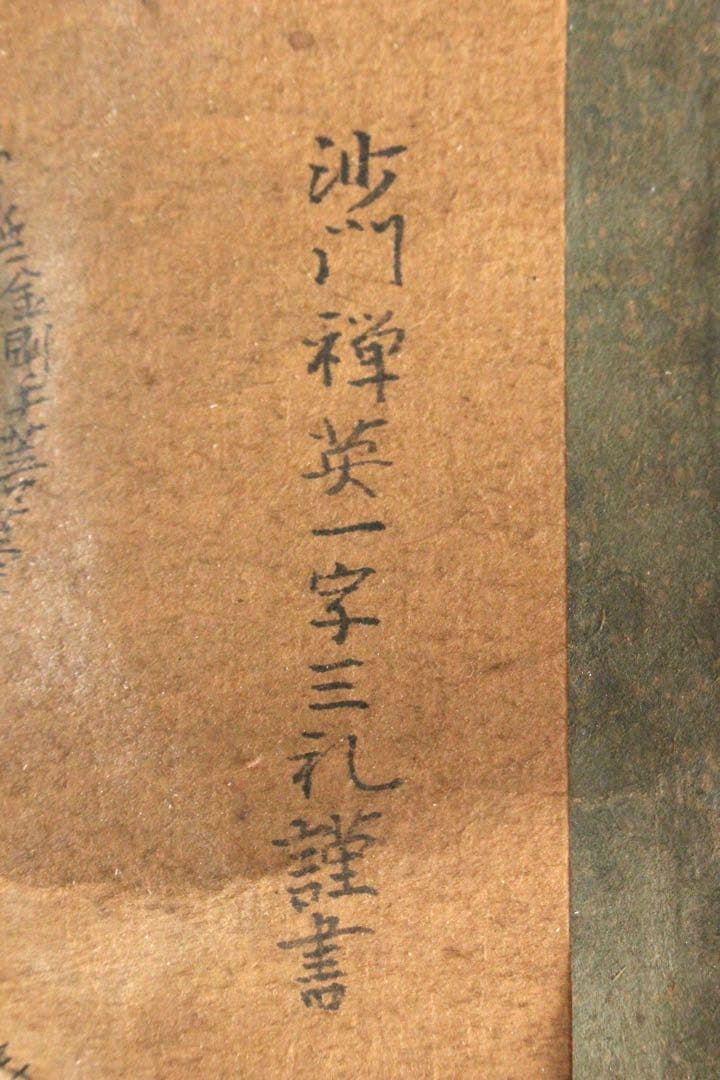 沙門禅英一字三礼謹書
金剛